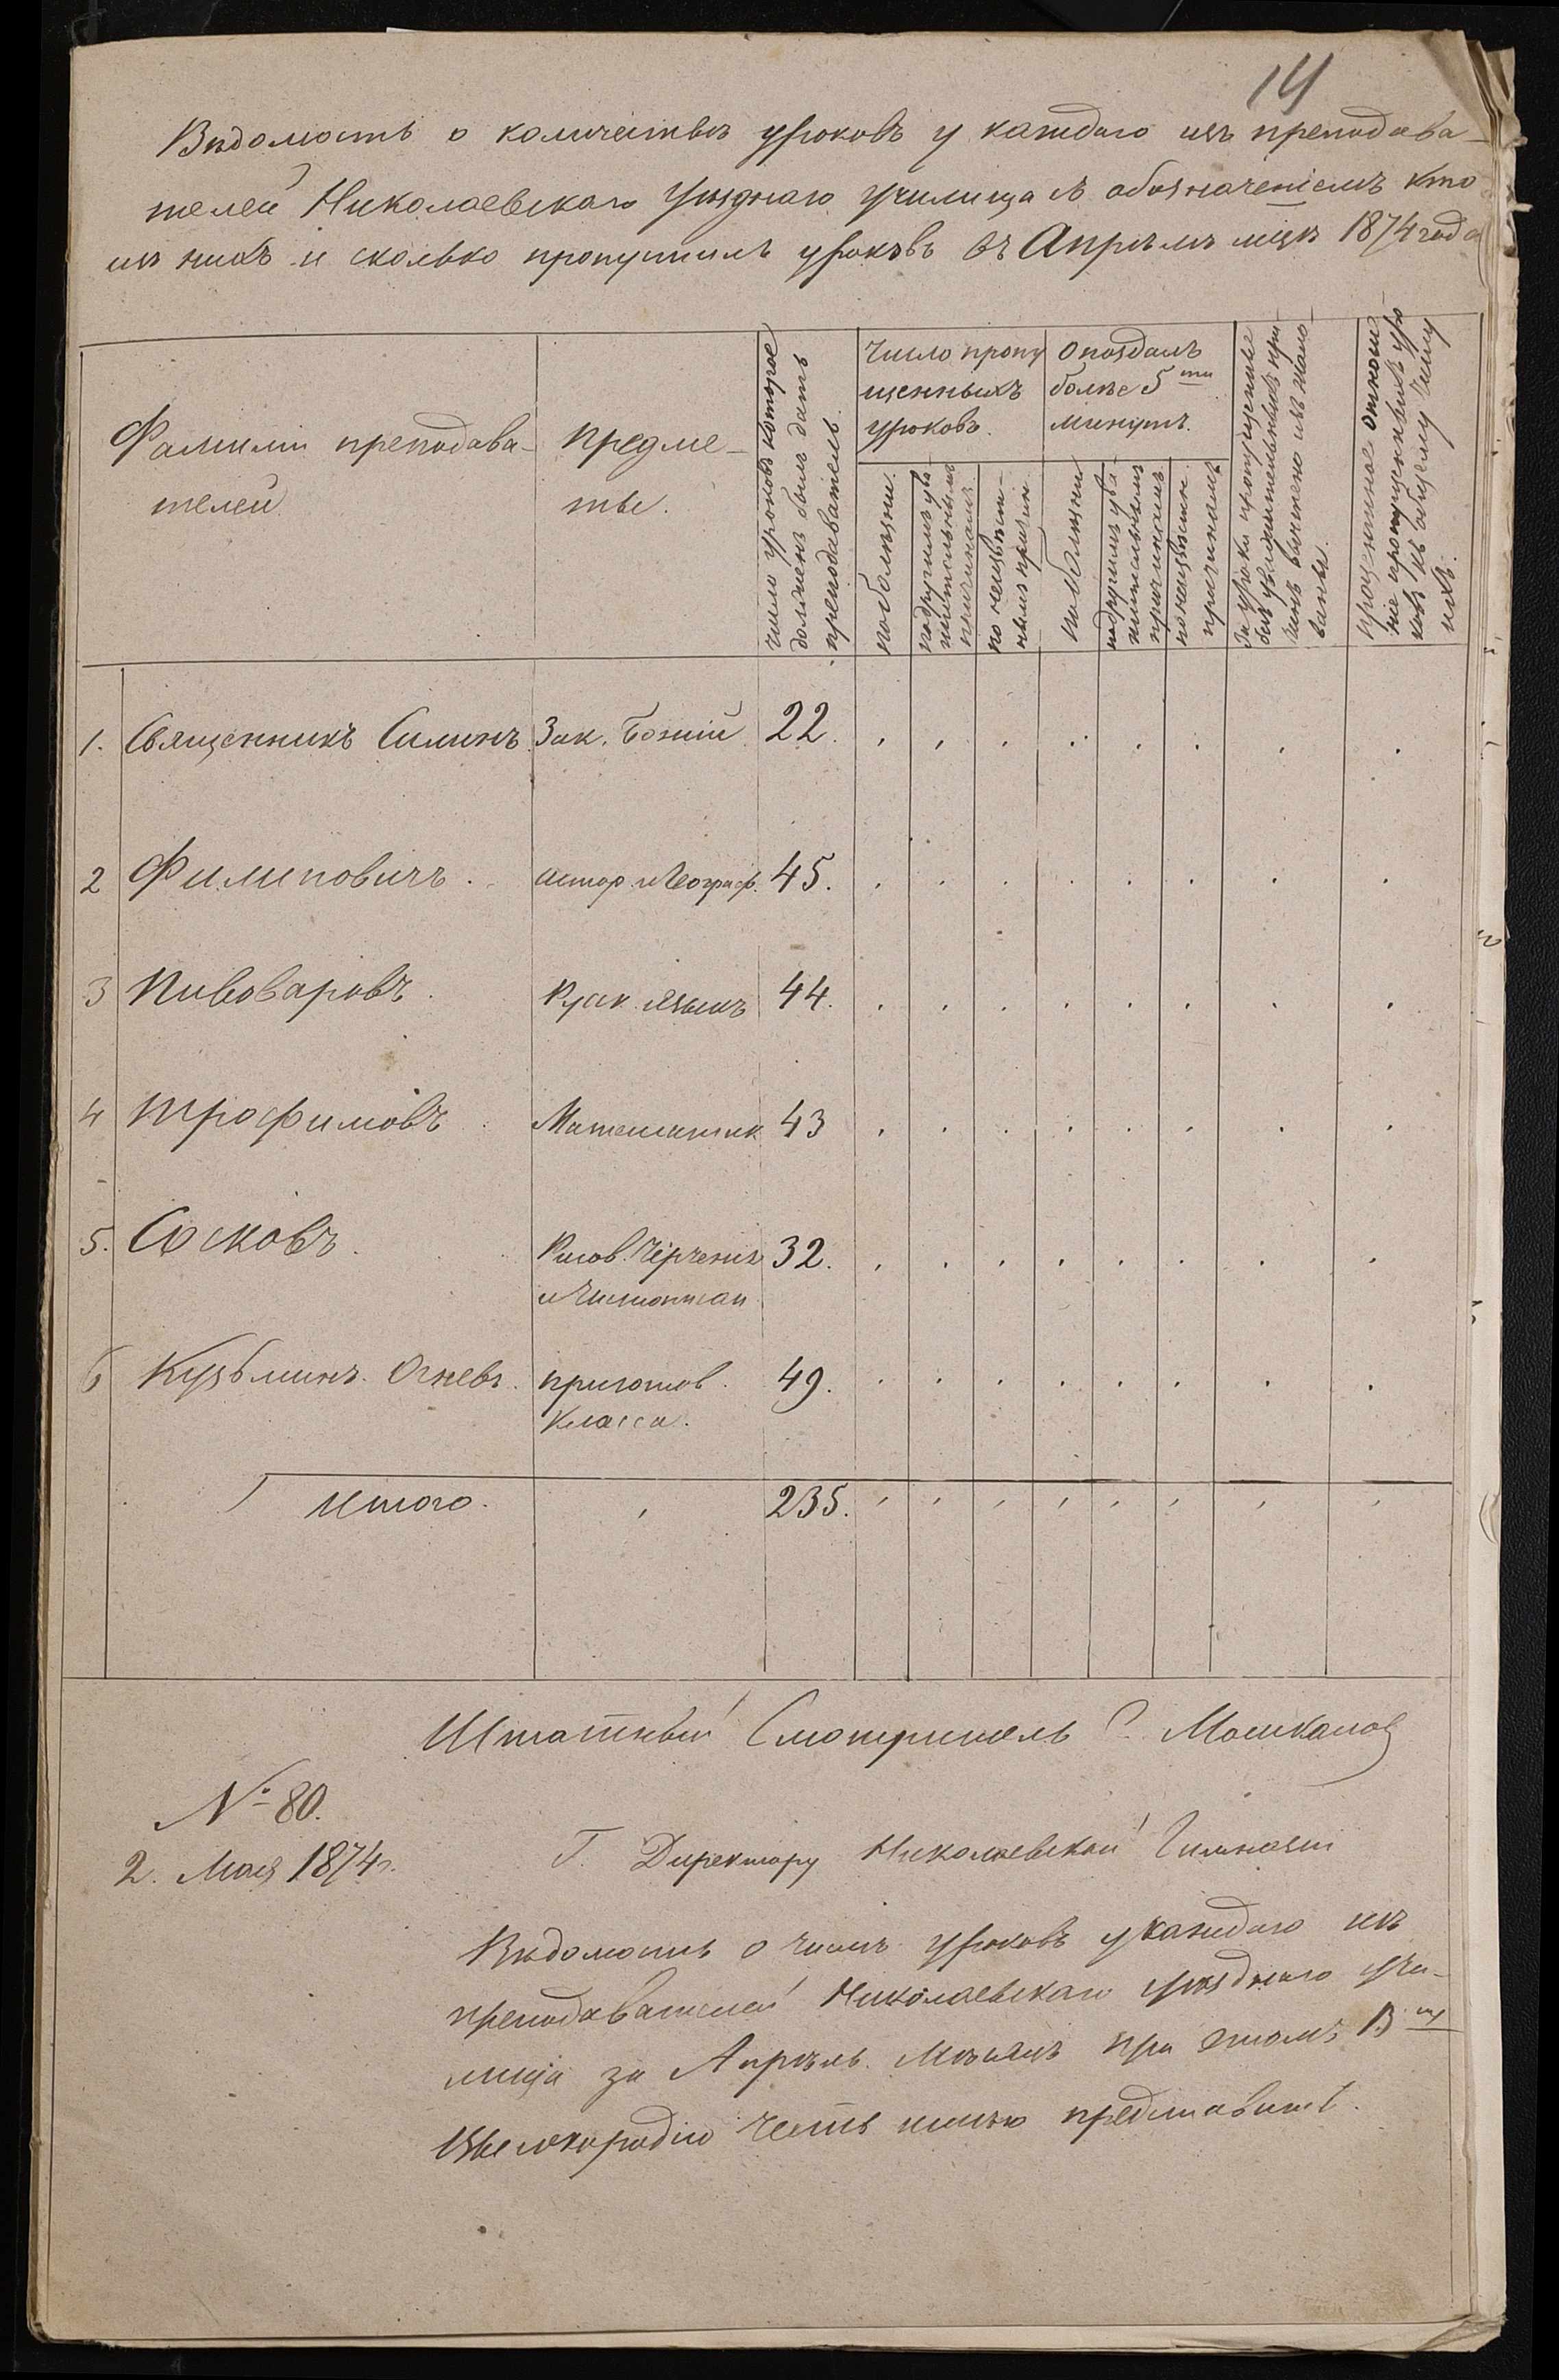 14
Вѣдомость о количествѣ уроковъ у каждаго изъ преподава-
телей Николаевскаго Уѣзднаго Училища съ обозначеніемъ кто
изъ нихъ и сколько пропустилъ уроковъ въ Апрѣлѣ мѣсяцѣ 1874 года
Фамиліи преподава-
телей
Предме-
ты.
Число уроковъ которое
долженъ былъ дать
преподаватель.
Число пропу
щенныхъ
уроковъ.
Опоздалъ
болѣе 5ти
минутъ.
по болѣзни.
по другимъ ува-
жительнымъ
причинамъ
по неизвѣст-
нымъ причин.
по болѣзни
по другимъ ува-
жительнымъ
причинамъ
по неизвѣстн.
причинамъ
За уроки пропущенные
безъ уважительныхъ при-
чинъ вычтено изъ жало-
ванья.
Процентное отноше-
ніе пропущенныхъ уро-
ковъ къ общему числу
ихъ.
1. Священникъ Силинъ Зак. Божій 22.
2 Филиповичъ. Истор. и Географ. 45.
3 Пивоваровъ. Руск. Языкъ 44.
4 Трофимовъ. Математик 43
5. Сосковъ. Рисов. Черченія 32.
и Чистописан
6 Кузьминъ-Огневъ. приготов. 49.
Класса.
Итого. 235.
Штатный Смотритель С. Мошкалов
№ 80.
2. Мая 1874 г.
Г. Директору Николаевской Гимназіи
Вѣдомость о числѣ уроковъ у каждаго изъ
преподавателей Николаевскаго уѣзднаго учи-
лища за Апрѣль мѣсяцъ при этомъ В-му
Высокородію честь имѣю представить.